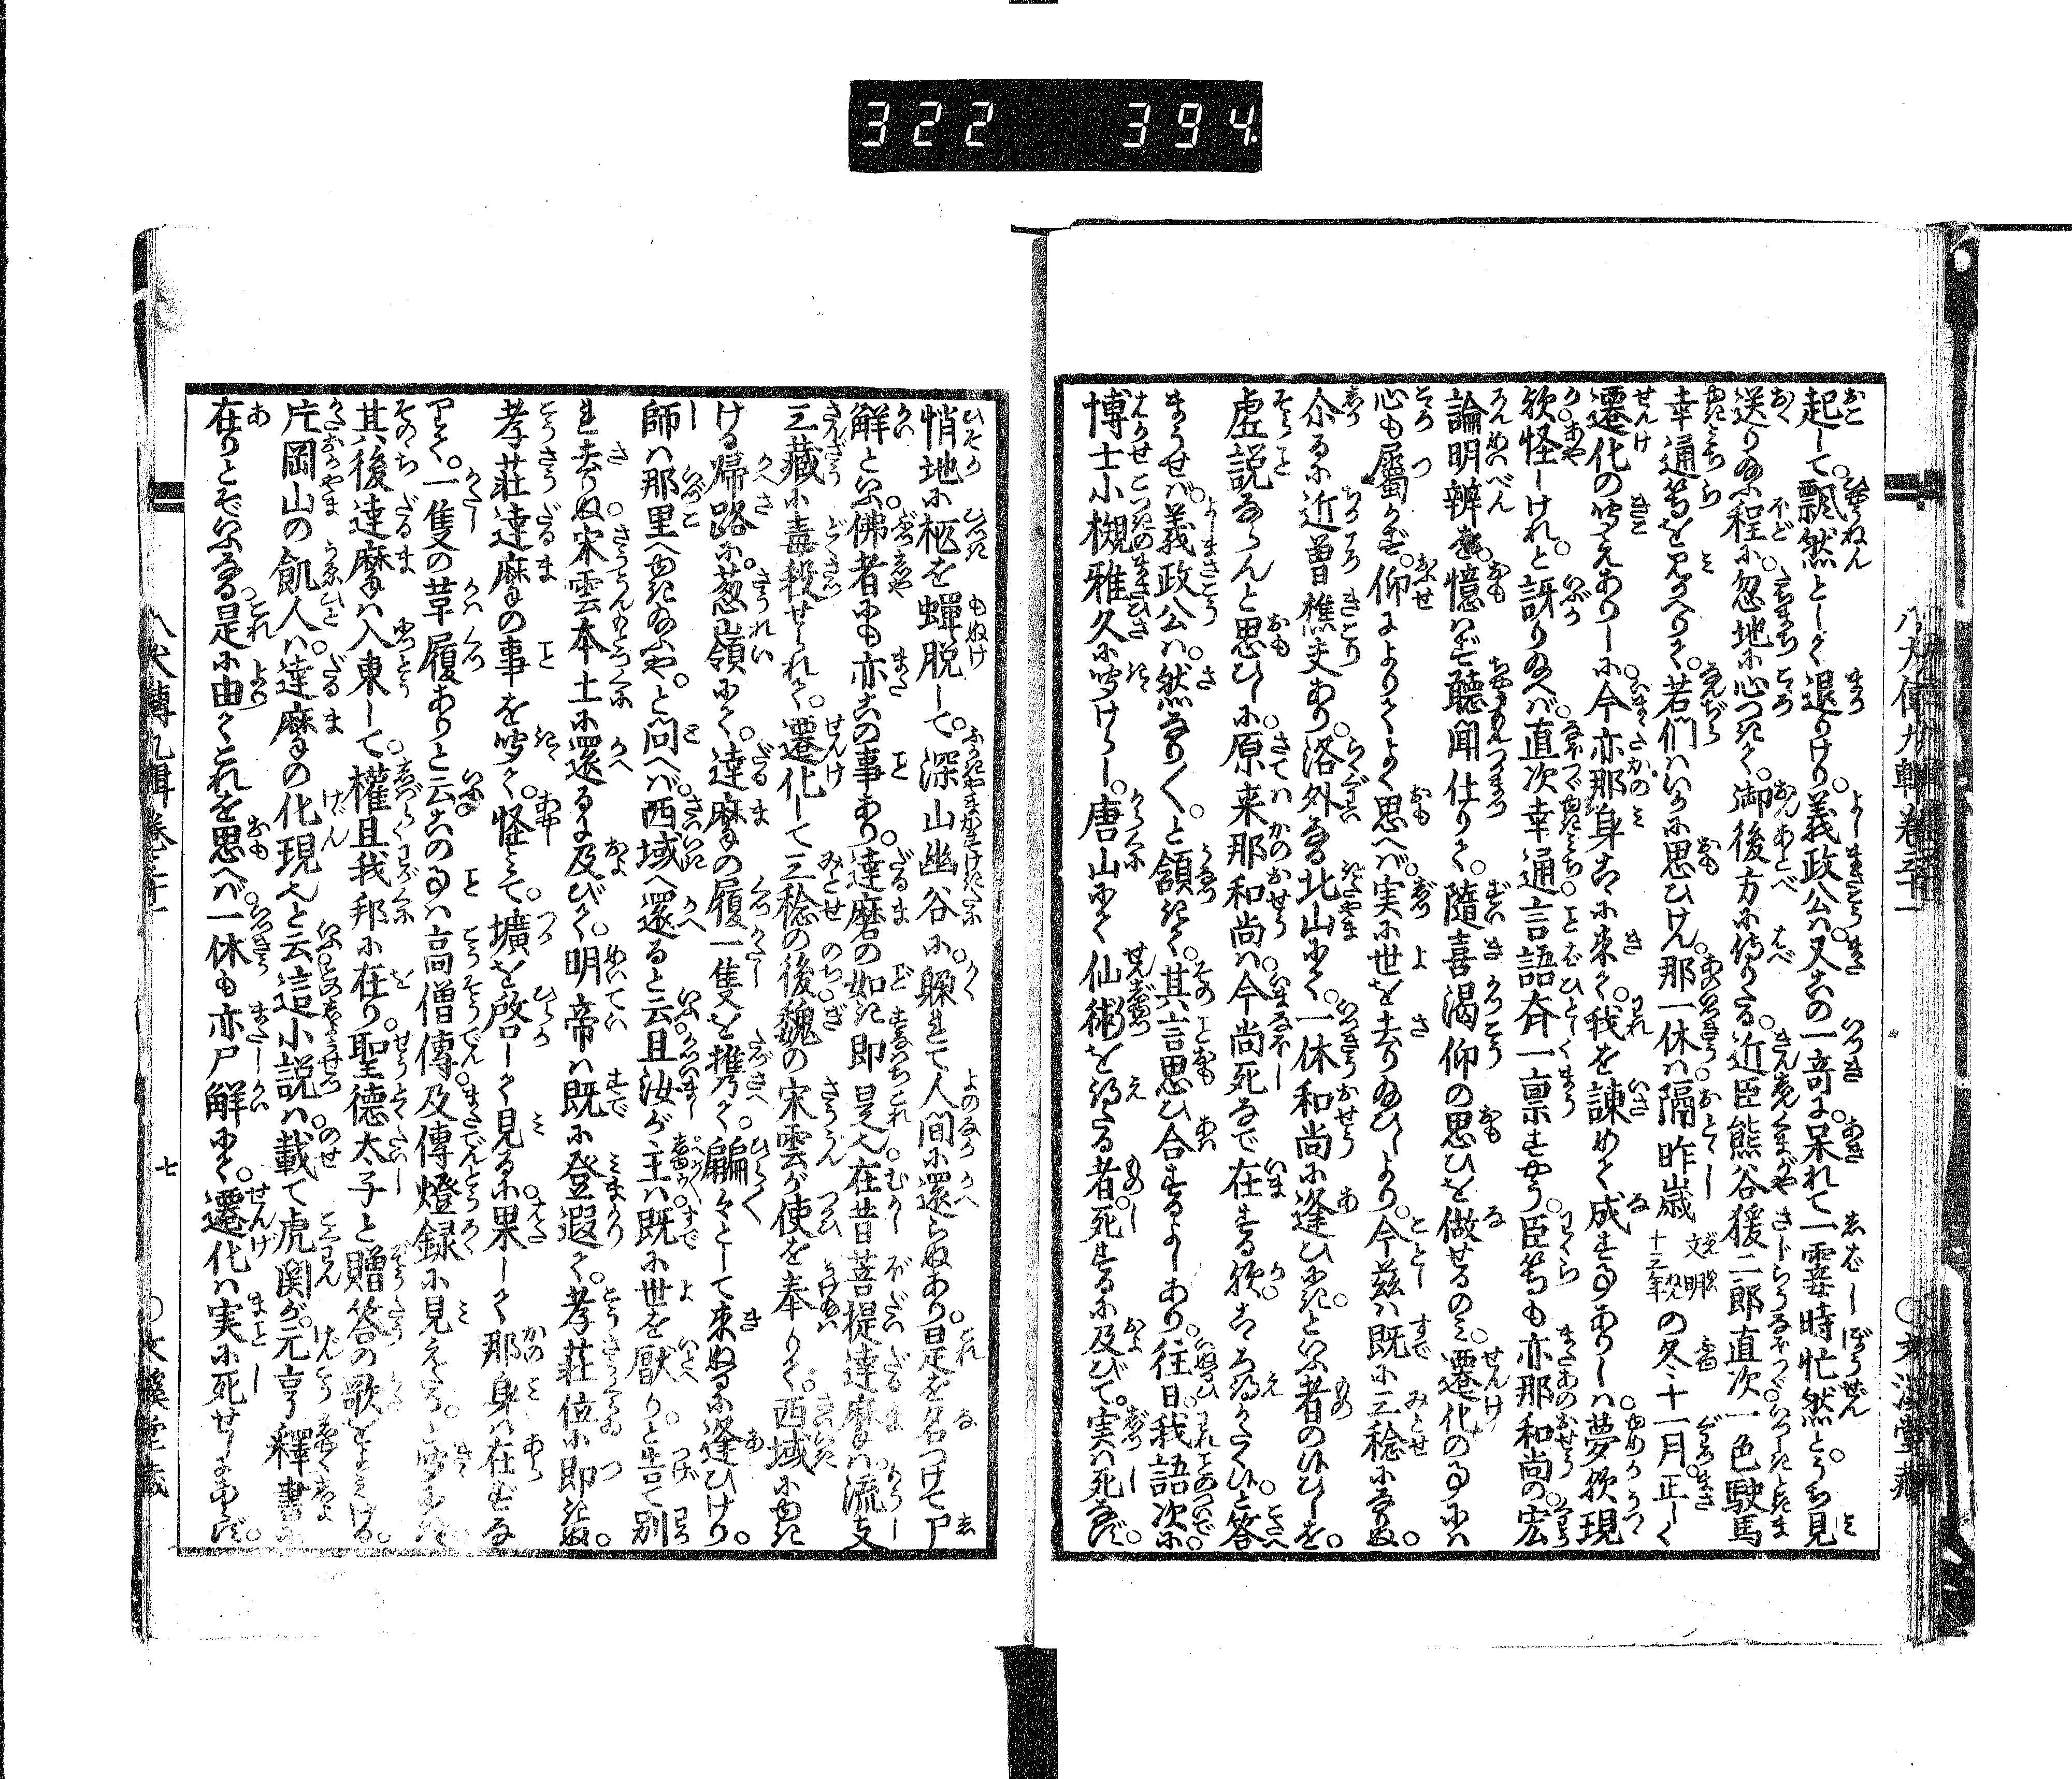 322 394
起して。飄然として退りけり。義政公は又この一奇に呆れて一霎時忙然とうち見
送り給ふ程に。忽地に心つきて。御後方に侍りたる。近臣熊谷猨二郎直次一色駛馬
幸通等を見かへりて。若們はいかに思ひけん。那一休は隔昨歳文明十三年の冬十一月。正しく
遷化の聞えありしに。今亦那身こゝに来て。我を諫めて成す事ありしは。夢欤現
欤。怪しけれと訝り給へば。直次幸通言語斉一稟すやう。臣等も亦那和尚の。宏
論明辨を。憶はず聴聞仕りて。隨喜渇仰の思ひを做せるのみ。遷化の事には
心も属かず。仰によりてよく思へば。実に世を去り給ひしより。今茲は既に三稔になりぬ。
尒るに近曽樵夫あり。洛外なる北山にて。一休和尚に逢ひにきといふ者の候ひしを。
虚説ならんと思ひしに。原来那和尚は今尚死なで在する欤。こゝろ得かたく候と答
まうせば。義政公は。然なり〳〵。と頷きて。其言思ひ合するよしあり。往日。我語次に。
博士小槻雅久に聞けらし。唐山にて仙術を得たる者。死するに及びて。実は死なず。
悄地に柩を蝉脱して。深山幽谷に。躱れて人間に還らぬあり。是を名つけて尸
解といふ。佛者にも亦この事あり。達磨の如き即是也。在昔菩提達磨は。流支
三藏に毒殺せられて。遷化して三稔の後魏の宋雲が使を奉りて。西域に赴き
ける帰路に。葱嶺にて。達磨の履一隻を携て。翩々として来ぬるに逢ひけり。
師は那里へ赴き給ふや。と問へば。西域へ還ると云。且汝が主は既に世を厭りと告て別
れ去りぬ。宋雲本土に還るに及びて。明帝は既に登遐て。孝荘位に即きぬ。
孝荘達磨の事を聞て。怪みて。壙を啓して見るに果して那身は在ずな
りて。一隻の草履ありと云。この事は高僧傳及傳燈録に見えたり。と聞にき。
其後達磨は入東して。權且我邦に在り。聖徳太子と贈答の歌をよみける。
片岡山の飢人は。達磨の化現也と云。這小説は載て虎関が元亨釋書に
在りとぞいふなる。是に由てこれを思へば。一休も亦尸解にて。遷化は実に死せしにあらず。
八犬傳九輯巻三十一
七
〇文溪堂藏